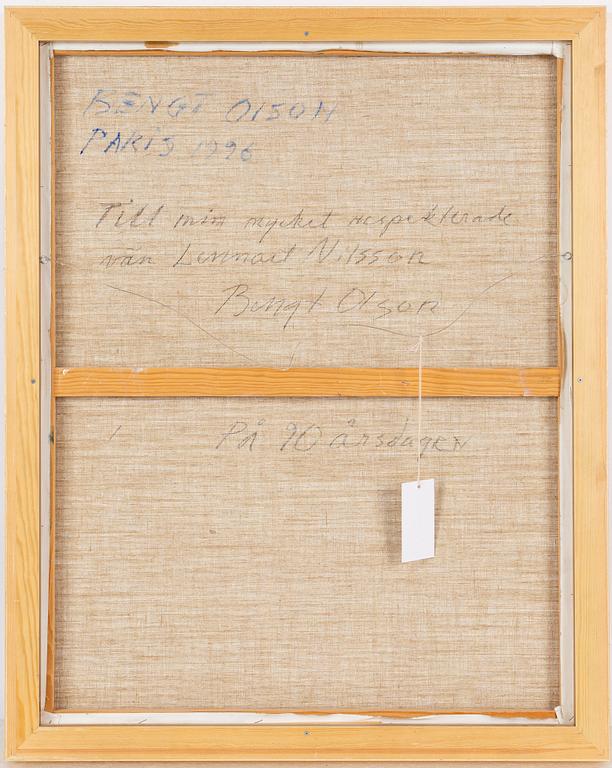 BENGT OLSON
PARIS 1996
Till min mycket respekterade
vän Lennart Nilsson
Bengt Olson
På 90 årsdagen